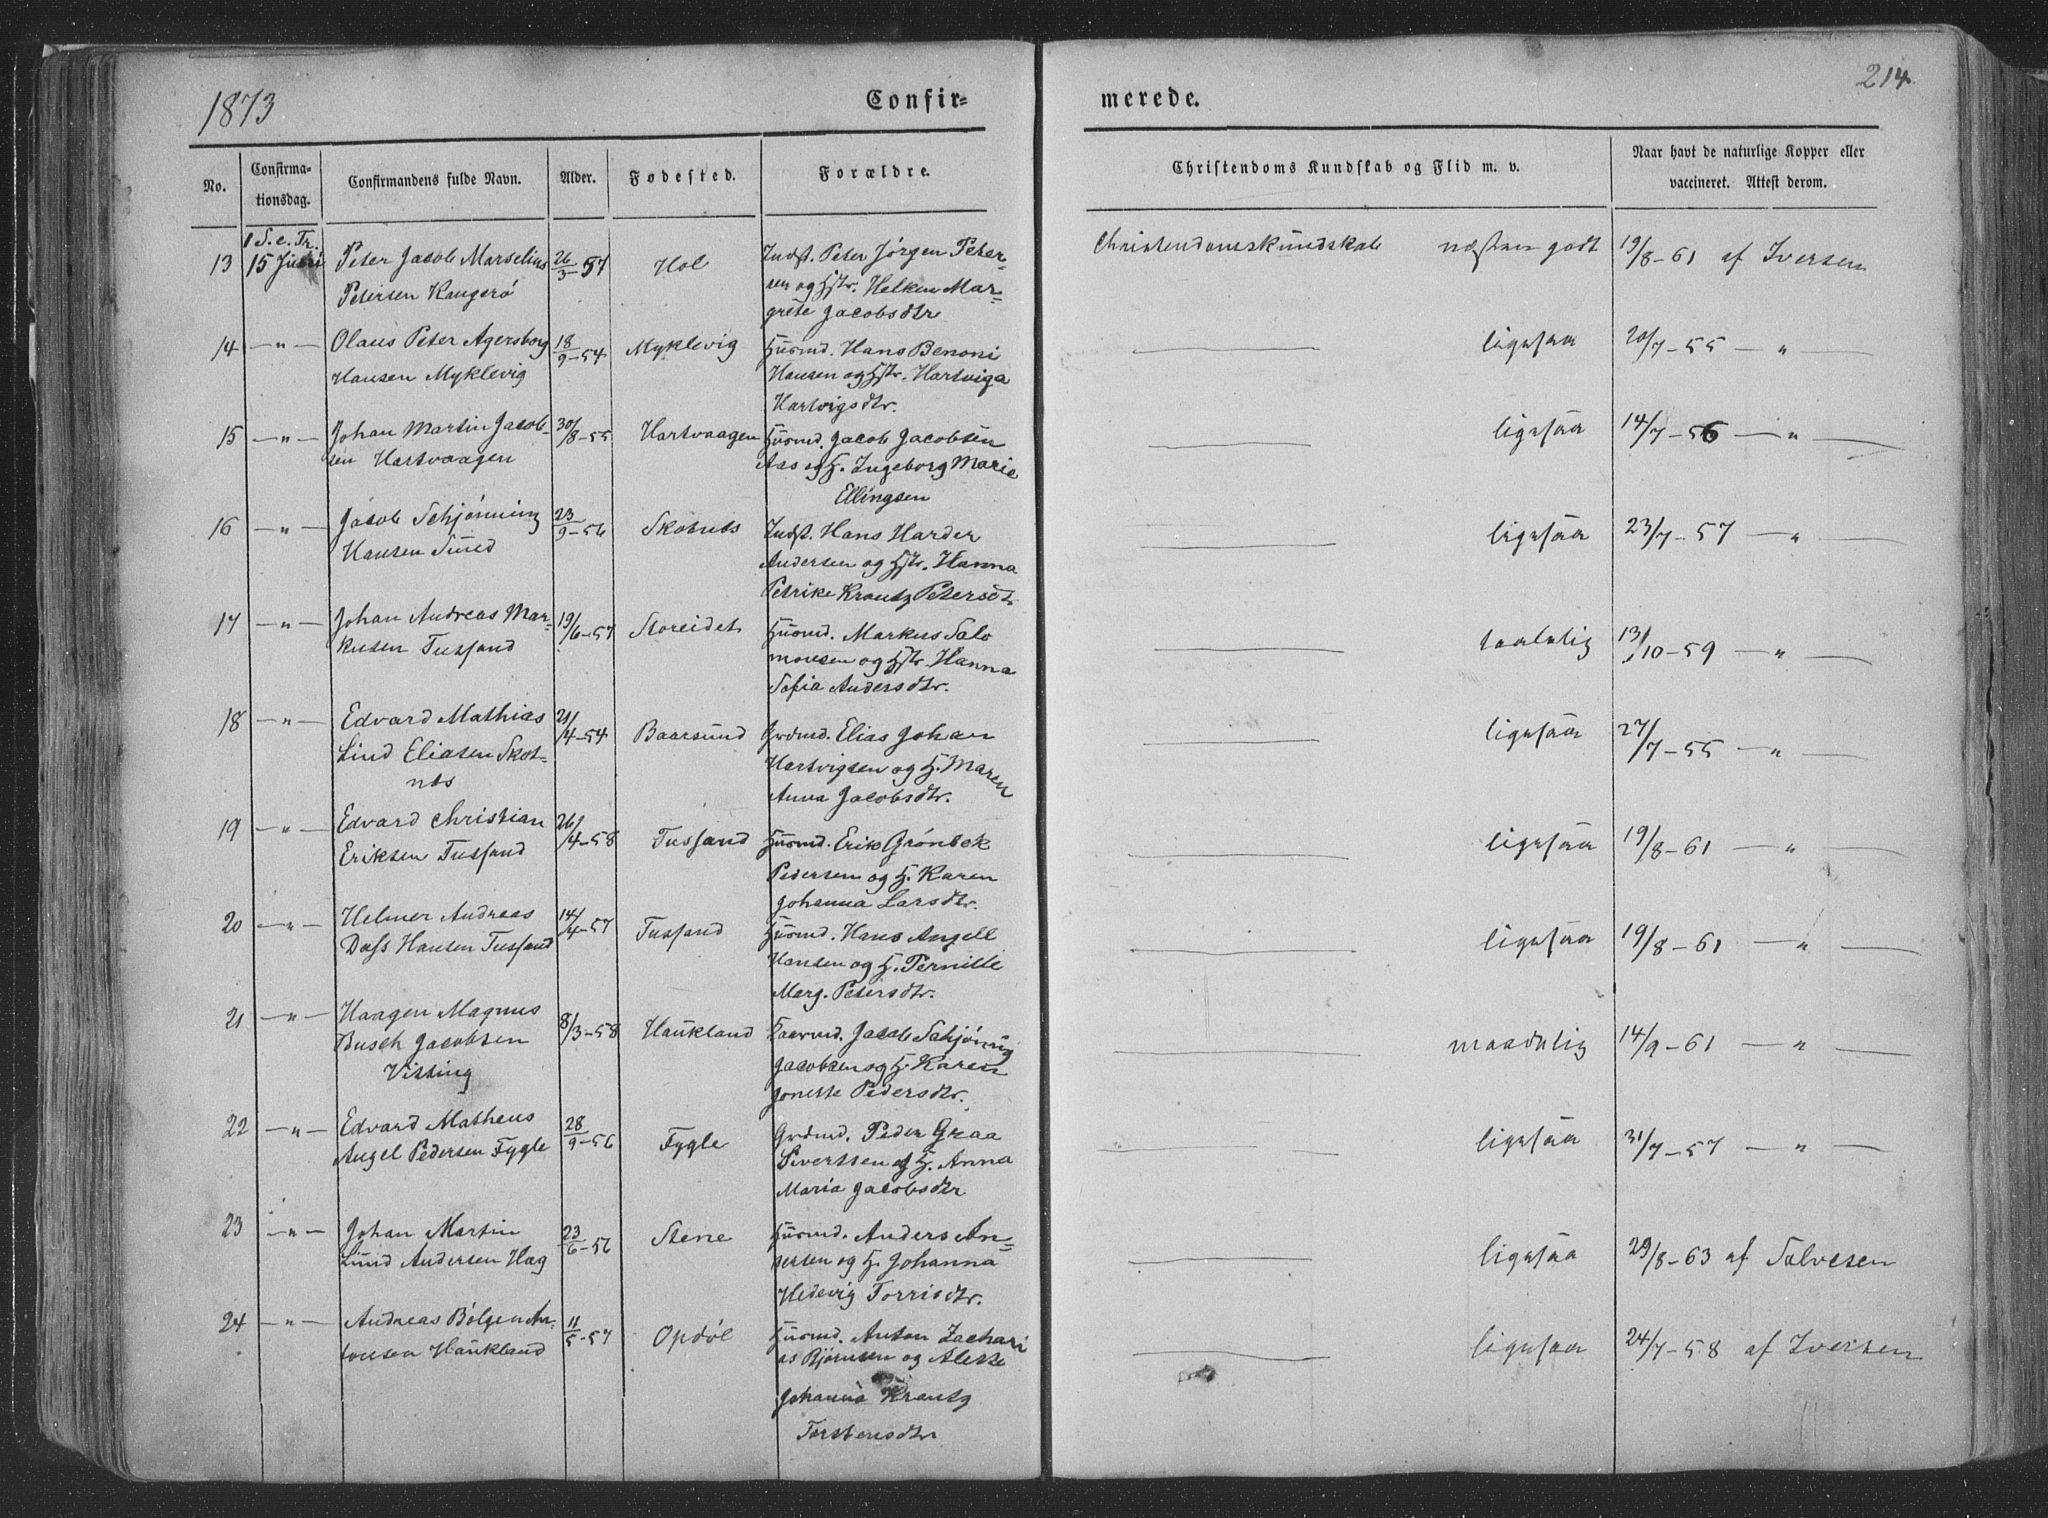 1873
Confir-
merede.
214
No.
Confirma-
tionsdag.
Confirmandens fulde Navn.
Alder.
Fødested.
Forældre.
Christendoms Kundskab og Flid m. v.
Naar havt de naturlige Kopper eller
vaccineret. Attest derom.
1 S. e. Tr.
13 15 Juni Peter Jacob Marselius 26/3-57 Hol Indst. Peter Jørgen Peter- Christendomskundskab næsten godt 19/8-61 af Iversen
Petersen Kangerø sen og Hstr. Helken Mar-
grete Jacobsdtr
14 —„— Olaus Peter Agersborg 18/9-54 Myklevig Husmd. Hans Benoni ligesaa 20/7-55 —„—
Hansen Myklevig Hansen og Hstr. Hartviga
Hartvigsdtr.
15 —„— Johan Martin Jacob- 30/8-55 Hartvaagen Husmd. Jacob Jacobsen ligesaa 14/7-56 —„—
sen Hartvaagen Aas og H. Ingeborg Marie
Ellingsen
16 —„— Jacob Schjønning 23/9-56 Skotnes Indst. Hans Harder ligesaa 23/7-57 —„—
Hansen Sund Andersen og Hstr. Hanna
Petrike Krantz Petersdt.
17 —„— Johan Andreas Mar- 19/6-57 Storeidet Husmd. Markus Salo taalelig 13/10-59 —„—
kusen Tussand monsen og Hstr. Hanna
Sofia Andersdtr.
18 —„— Edvard Mathias 21/4-54 Baarsund Grdmd. Elias Johan ligesaa 27/7-55 —„—
Lind Eliasen Skot- Hartvigsen og H. Maren
nes Anna Jacobsdtr.
19 —„— Edvard Christian 26/4-58 Tussand Husmd. Erik Grønbek ligesaa 19/8-61 —„—
Eriksen Tussand Pedersen og H. Karen
Johanna Larsdtr.
20 —„— Helmer Andreas 14/4-57 Tussand Husmd. Hans Angell ligesaa 19/8-61 —„—
Dass Hansen Tussand Hansen og H. Pernille
Marg. Petersdtr.
21 —„— Haagen Magnus 8/3-58 Haukland Gaarmd. Jacob Schjønnig maadelig 14/9-61 —„—
Busch Jacobsen Jacobsen og H. Karen
Visting Jonette Pedersdtr.
22 —„— Edvard Matheus 28/9-56 Fygle Grdmd. Peder Graa ligesaa 31/7-57 —„—
Angel Pedersen Fygle Sivertsen og H. Anna
Maria Jacobsdtr
23 —„— Johan Martin 23/6-56 Stene Husmd. Anders An- ligesaa 29/8-63 af Salvesen
Lund Andersen Hag dersen og H. Johanna
Hedevig Torrisdtr.
24 —„— Andreas Bølgen An- 11/5-57 Opdøl Husmd. Anton Zachari ligesaa 24/7-58 af Iversen
tonsen Haukland as Bjørnsen og Alette
Johanna Krantz
Torstensdtr